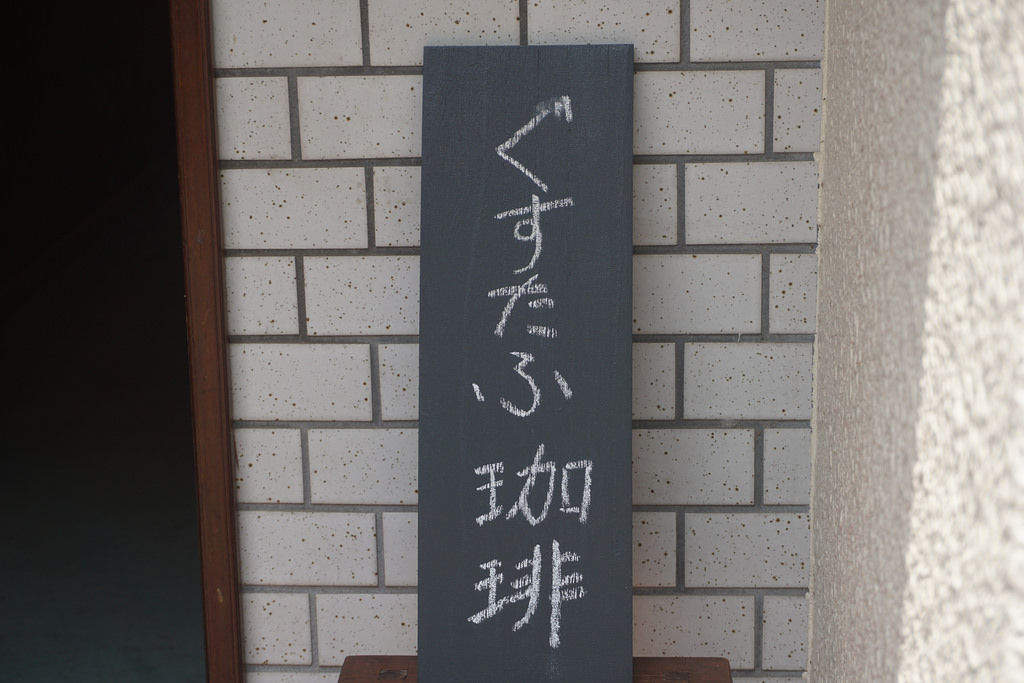 ぐすたふ珈琲